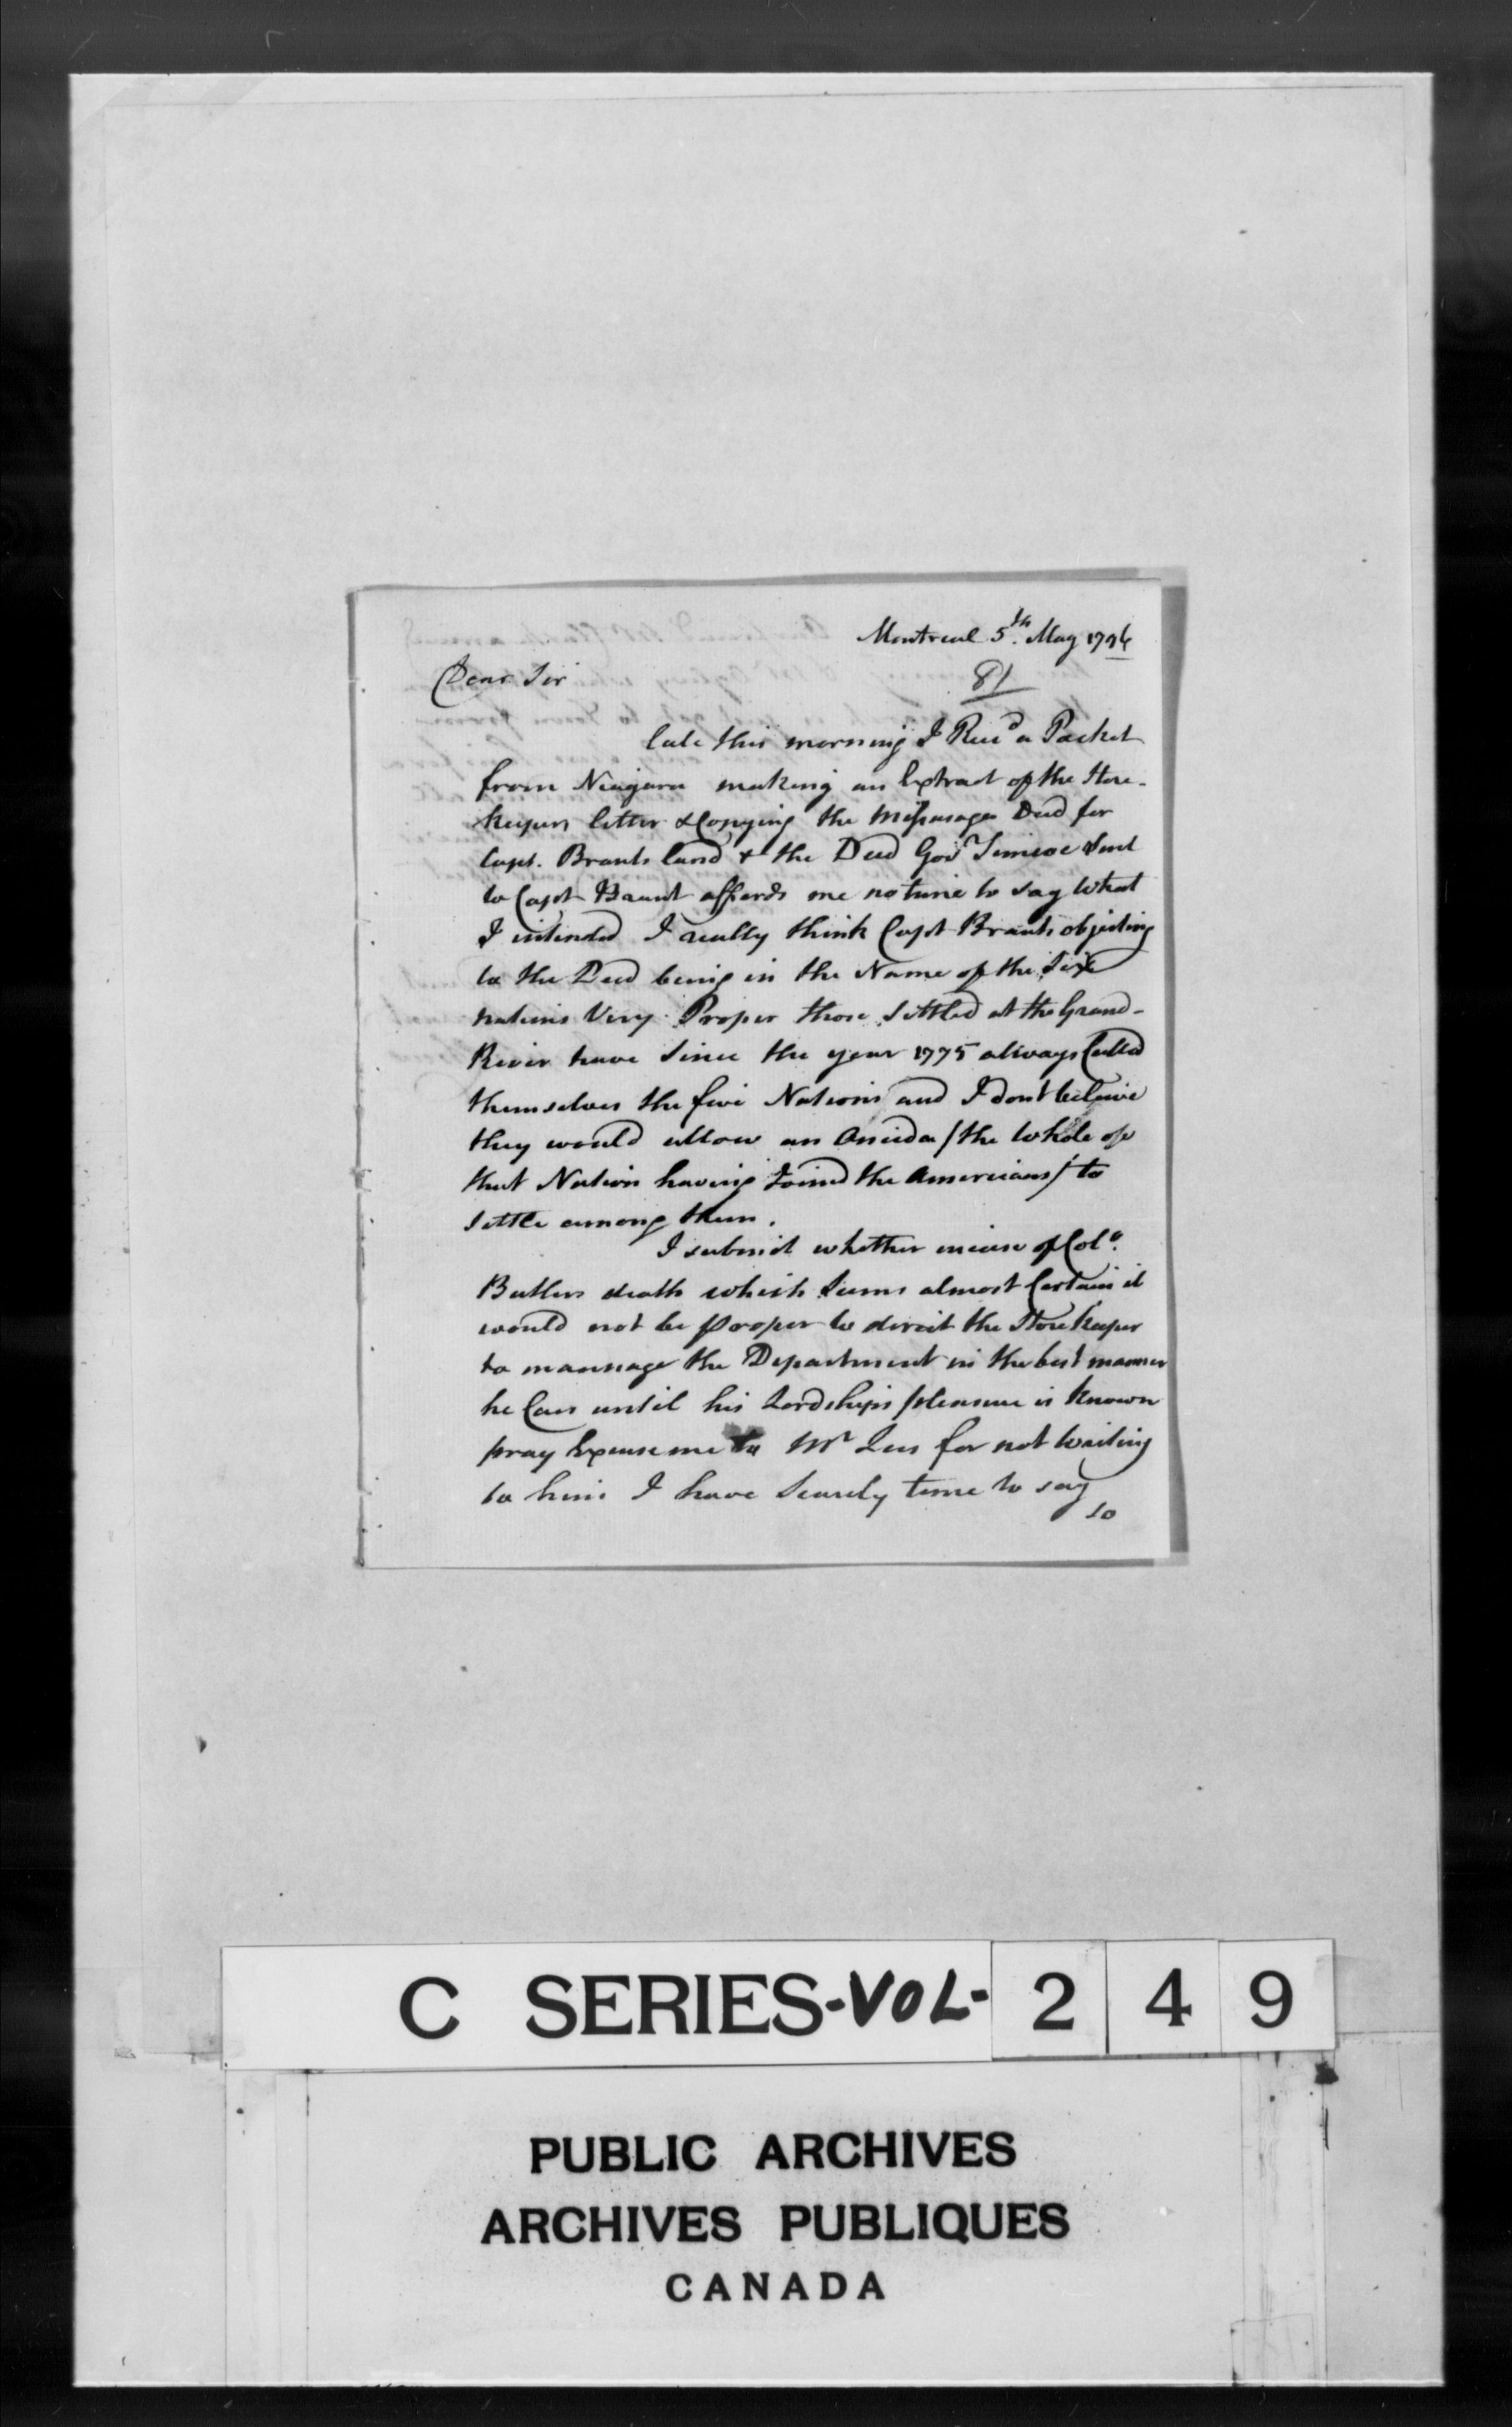 Montreal 5th. May 1796
81
Dear Sir
late this morning I Recd a Packet
from Niagara making an Extract of the Store-
keepers letter & Copying the Missasaga Deed for
Capt. Brants land & the Deed Govr Simcoe Sent
to Capt Brant affords me no time to say What
I intended I really think Capt Brants objecting
to the Deed being in the Name of the Six
nations Very Proper those Settled at the Grand-
River have Since the year 1775 always Called
themselves the five Nations and I dont beleive
they would allow an Oneida / the Whole of
that Nation having Joined the Americans / to
Settle among them.
I submit whether incase of Colo.
Butlers death which Seems almost Certain it
would not be proper to direct the Store keeper
to mannage the Department in the best manner
he Can until his Lordships pleasure is Known
pray Excuse me to Mr Lees for not Writing
to him I have Scarcely time to say
so
C SERIES-VOL-249
PUBLIC ARCHIVES
ARCHIVES PUBLIQUES
CANADA